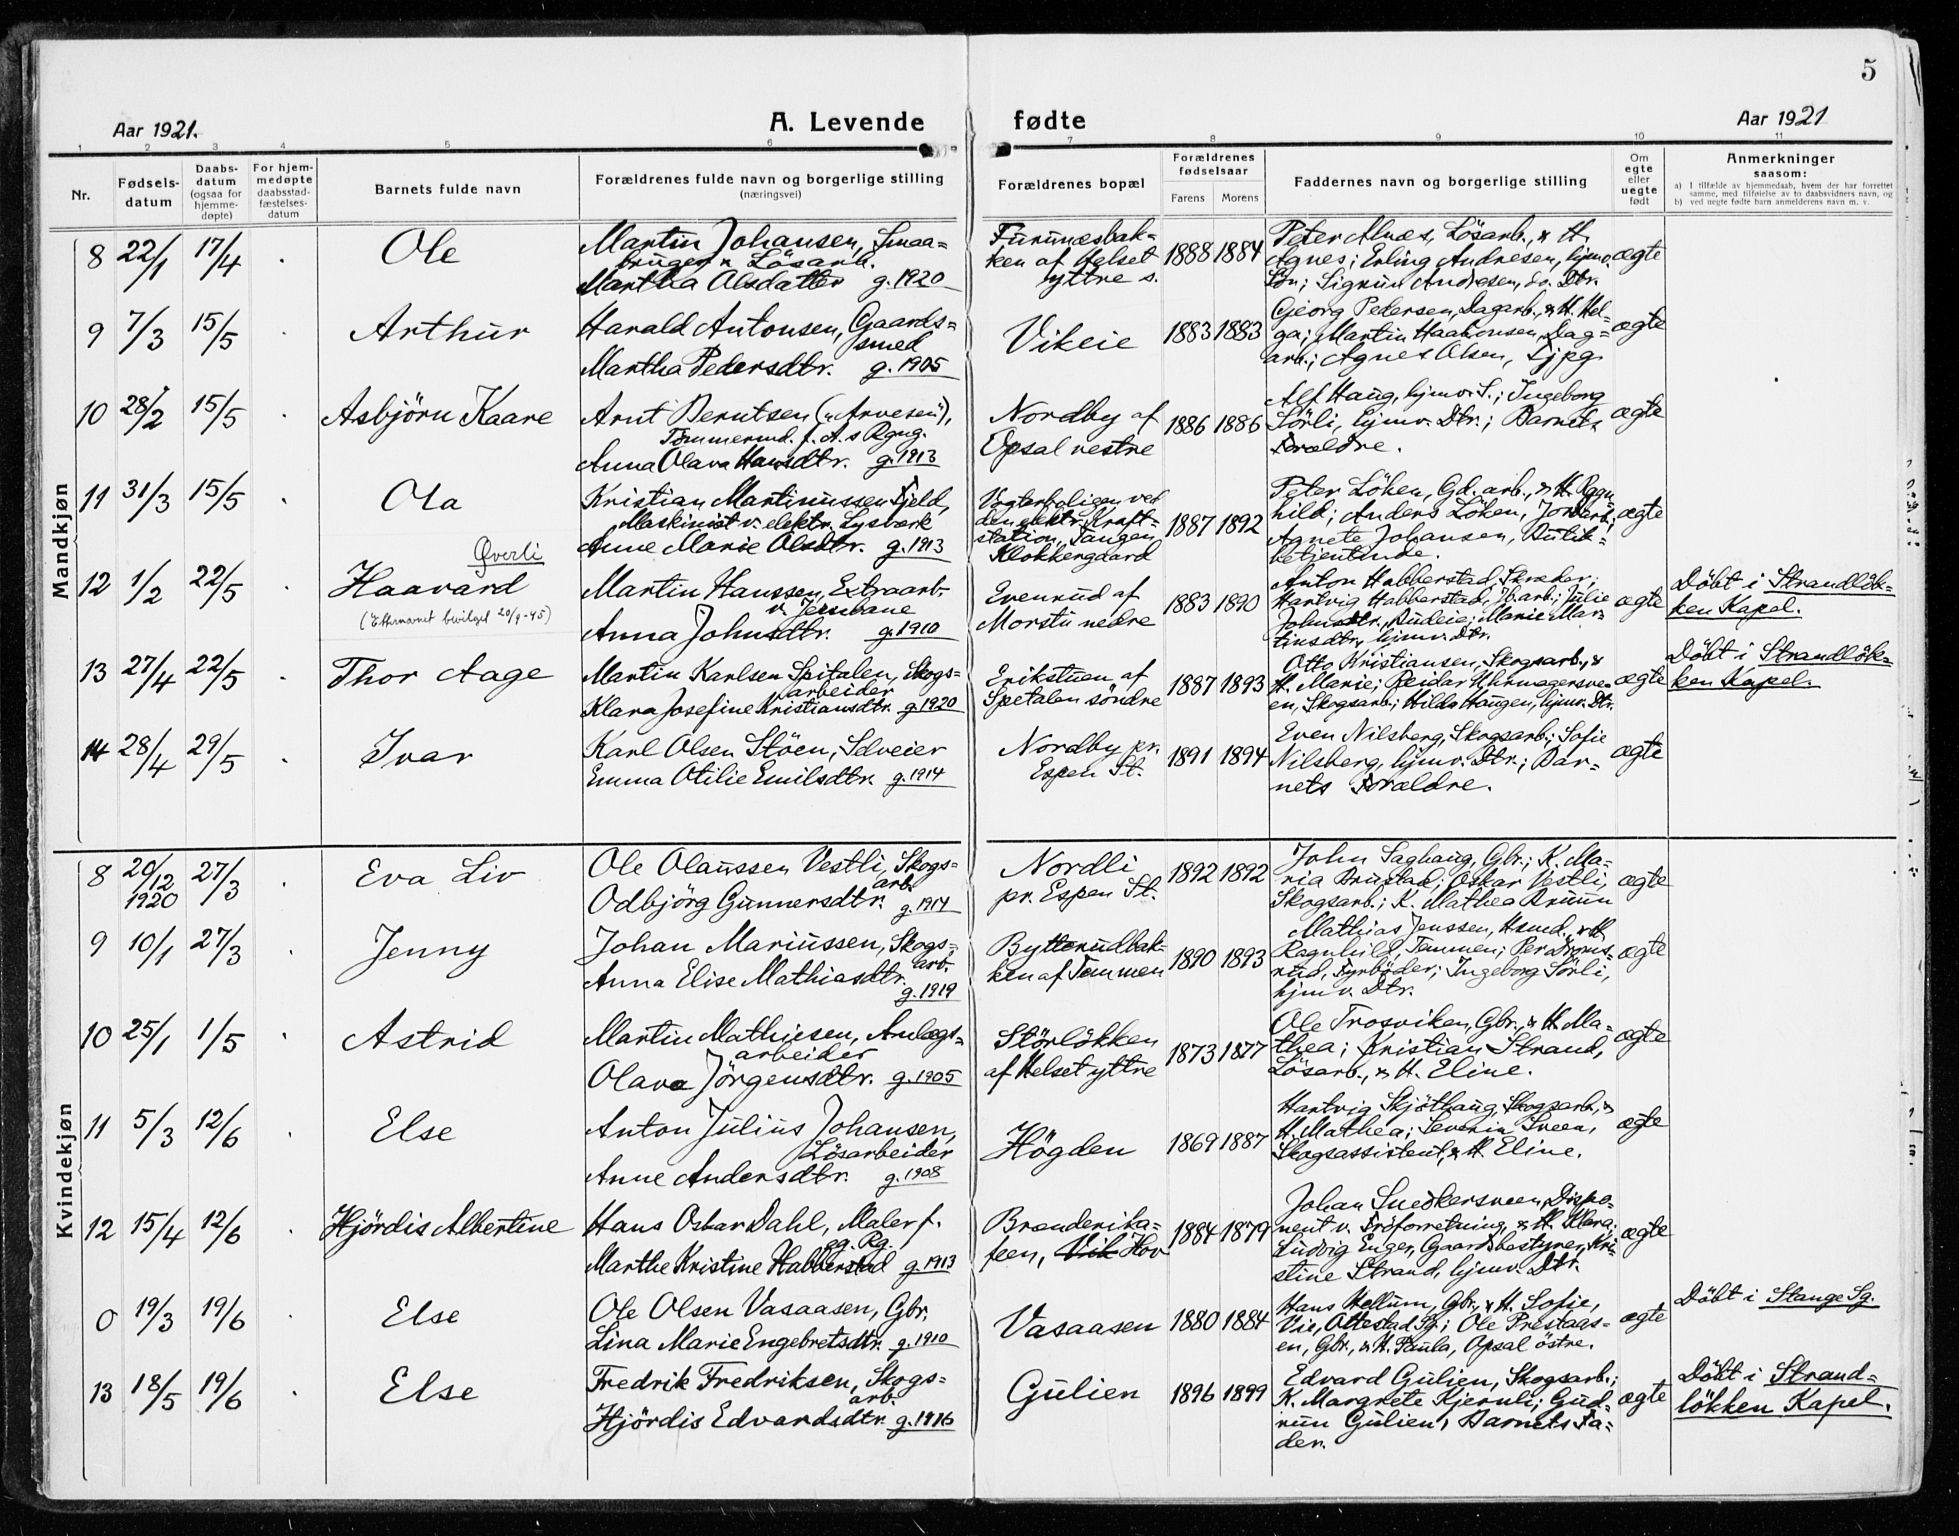 5
Aar 1921.
A. Levende fødte
Aar 1921
1 2 3 4 5 6 7 8 9 10 11
Nr.
Fødsels-
datum
Daabs-
datum
(ogsaa for
hjemme-
døpte)
For hjem-
medøpte
daabsstad-
fæstelses-
datum
Barnets fulde navn
Forældrenes fulde navn og borgerlige stilling
(næringsvei)
Forældrenes bopæl
Forældrenes
fødselsaar
Farens Morens
Faddernes navn og borgerlige stilling
Om
egte
eller
uegte
født
Anmerkninger
saasom:
a) I tilfælde av hjemmedaab, hvem der har forrettet
samme, med tilføielse av to daabsvidners navn, og
b) ved uegte fødte barn anmelderens navn m. v.
Mandkjøn
8 22/1 17/4 Ole
Martin Johansen, Smaa=
bruger & Lösarb.
Martha Olsdatter g. 1920
Furunæsbak=
ken af Helset
yttre s.
1888 1884
Peter Alnæs, Lösarb., & H.
Agnes; Erling Andresen, hjmv.
Sön; Sigrun Andresen, do. Dtr.
ægte
9 7/3 15/5 Arthur
Harald Antonsen, Gaards=
smed
Martha Pedersdtr. g. 1905
Vikeie
1883 1883
Georg Pedersen, Dagarb., & H. Hel-
ga; Martin Haakonsen, Dag=
arb.; Agnes Olsen, Tjpg.
ægte
10 28/2 15/5 Asbjörn Kaare
Arnt Berntsen („Arvesen"),
Tömmermd. f. A/s Rgng.
Anna Olava Hansdtr. g. 1913
Nordby af
Opsal vestre
1886 1886
Alf Haug, hjmv. S.; Ingeborg
Sörli, hjmv. Dtr.; Barnets
Forældre.
ægte
11 31/3 15/5 Ola
Kristian Martinussen Fjeld,
Maskinist v. elektr. Lysverk
Anne Marie Olsdtr. g. 1913
Vogterboligen ved
den elektr. Kraft=
station, Tangen
Klokkergaard
1887 1892
Peter Löken, Gd. arb., & H. Ragn
hild; Anders Löken, Jordarb.;
Agnete Johansen, Butik=
betjentinde.
ægte
12 1/2 22/5 Haavard
Øverli
(Etternavnet bevilget 20/9-45)
Martin Hanssen, Extraarb.
v. Jernbane
Anna Johnsdtr. g. 1910
Evenrud af
Morstu nedre
1883 1890
Anton Habberstad, Skræder;
Hartvig Habberstad, Jb.arb.; Julie
Johnsdtr., Budeie; Marie Mar=
tinsdtr., hjmv. Dtr.
ægte
Döbt i Strandlök-
ken Kapel.
13 27/4 22/5 Thor Aage
Martin Karlsen Spitalen, Skogs=
arbeider
Klara Josefine Kristiansdtr. g. 1920
Erikstuen af
Spetalen söndre
1887 1893
Otto Kristiansen, Skogsarb., &
H. Marie; Reidar Uhrmagersve=
en, Skogsarb.; Hilda Haugen, hjmv. Dtr.
ægte
Döbt i Strandlök=
ken Kapel.
14 28/4 29/5 Ivar
Karl Olsen Stöen, Selveier
Emma Otilie Emilsdtr. g. 1914
Nordby pr.
Espen St.
1891 1894
Even Nilsberg, Skogsarb.; Sofie
Nilsberg, hjmv. Dtr.; Bar=
nets Forældre.
ægte
Kvindekjøn
8 20/12 1920 27/3 Eva Liv
Ole Olaussen Vestli, Skogs=
arb.
Odbjörg Gunnersdtr. g. 1914
Nordli
pr. Espen St.
1892 1892
John Saghaug, Gbr.; K. Ma=
ria Brustad; Oskar Vestli,
Skogsarb.; K. Mathea Bruun
ægte
9 10/1 27/3 Jenny
Johan Mariussen, Skogs=
arb.
Anna Elise Mathiasdtr. g. 1919
Bytterudbak=
ken af Tømmen
1890 1893
Mathias Jenssen, Hsmd., & H.
Ragnhild, Tømmen; Per
rud, Fyrböder; Ingeborg Sörli,
hjmv. Dtr.
ægte
10 25/1 1/5 Astrid
Martin Mathiesen, Anlægs=
arbeider
Olava Jörgensdtr. g. 1905
Störlökken
af Helset yttre
1873 1877
Ole Trosviken, Gbr., & H. Ma=
thea; Kristian Strand,
Lösarb., & H. Eline.
ægte
11 5/3 12/6 Else
Anton Julius Johansen,
Lösarbeider
Anne Andersdtr. g. 1908
Högden
1869 1887
Hartvig Skjöthaug, Skogsarb., &
H. Mathea; Severin Sveen,
Skogsassistent, & H. Eline.
ægte
12 15/4 12/6 Hjördis Albertine
Hans Oskar Dahl, Maler f.
eg. Rg.
Marthe Kristine Habberstad g. 1913
Brenderika=
feen, Vik Hov
1884 1879
Johan Snedkersveen, Dispo=
nent v. Fröforretning, & H. Klara;
Ludvig Enger, Gaardsbestyrer, Kri=
stine Strand, hjmv. Dtr.
ægte
0 19/3 19/6 Else
Ole Olsen Vasaasen, Gbr.
Lina Marie Engebretsdtr. g. 1910
Vasaasen
1880 1884
Hans Hellum, Gbr., & H. Sofie,
Vie, Ottestad Sg; Ole Prestaas=
en, Gbr., & H. Paula, Opsal östre.
ægte
Döbt i Stange Sg.
13 18/5 19/6 Else
Fredrik Fredriksen, Skogs=
arb.
Hjördis Edvardsdtr. g. 1916
Gulien
1896 1899
Edvard Gulien, Skogsarb.;
K. Margrete Kjernli; Gud=
run Gulien, Barnets Fa=
der.
ægte
Döbt i Strand=
lökken Kapel.